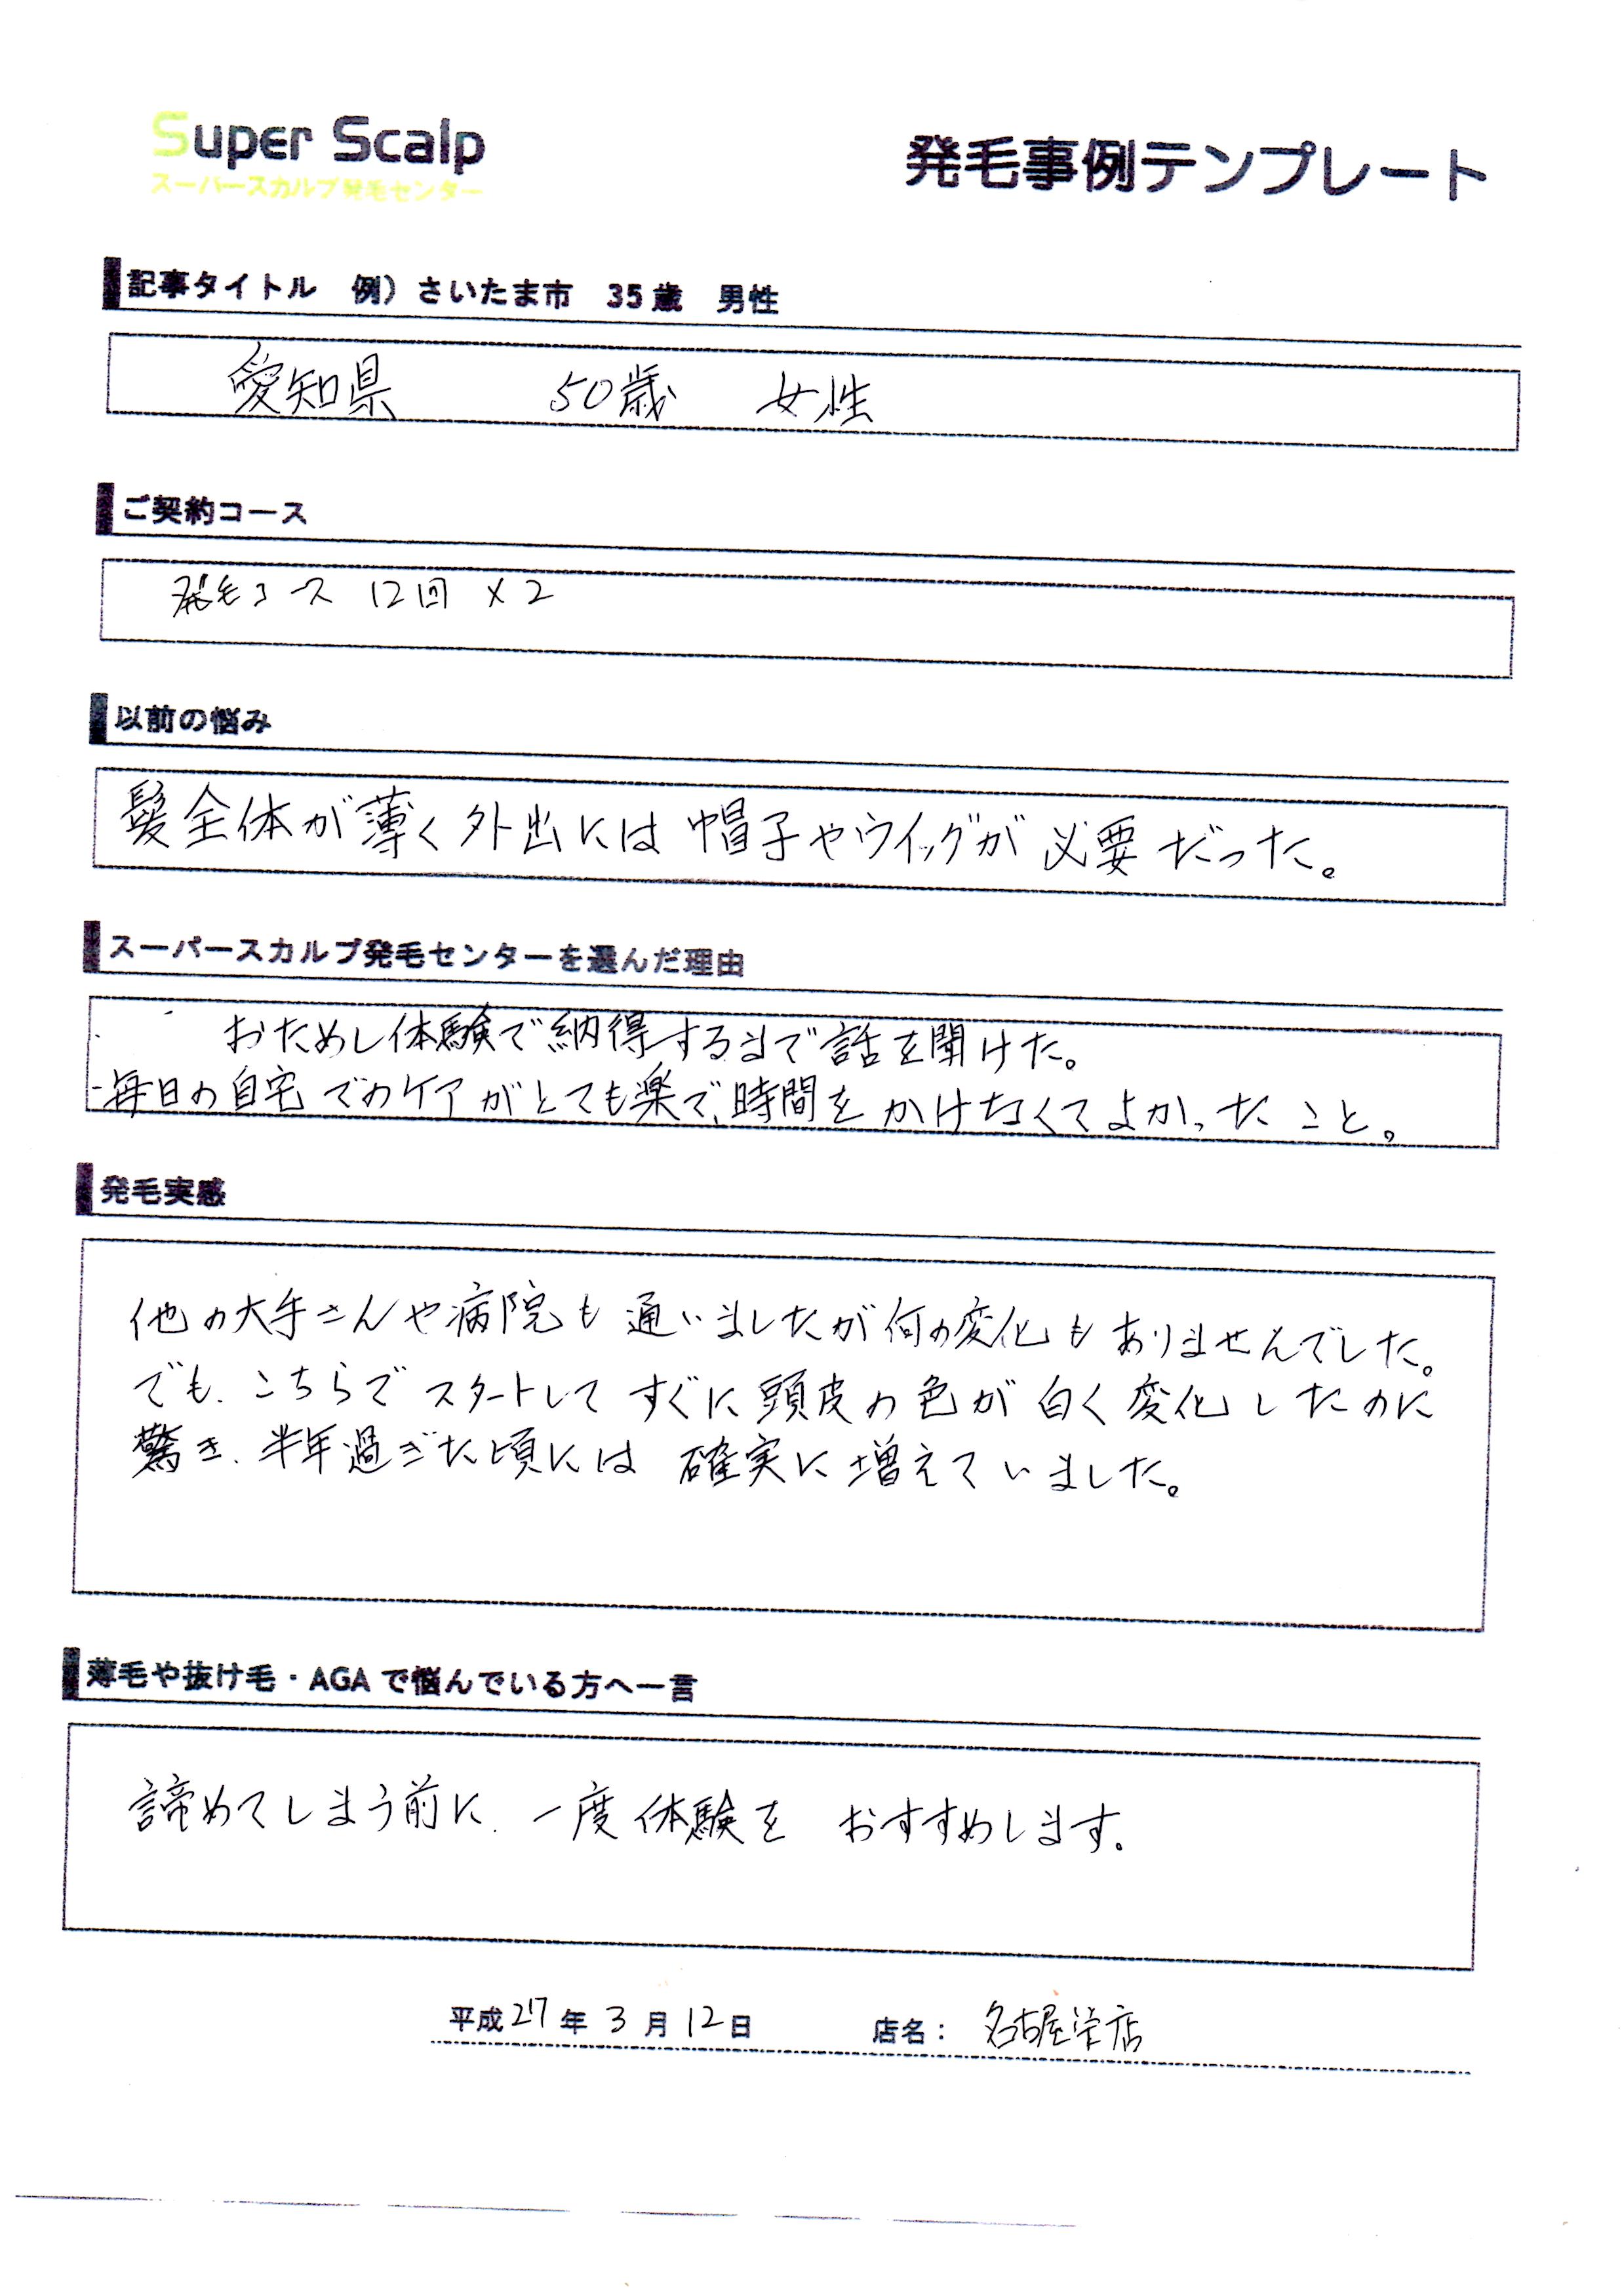 Super Scalp
スーパースカルプ発毛センター
発毛事例テンプレート
記事タイトル 例）さいたま市 35歳 男性
愛知県 50歳 女性
ご契約コース
発毛コース 12回 × 2
以前の悩み
髪全体が薄く外出には帽子やウイッグが必要だった。
スーパースカルプ発毛センターを選んだ理由
おためし体験で納得するまで話を聞けた。
・毎日の自宅でのケアがとても楽で、時間をかけなくてよかったこと。
発毛実感
他の大手さんや病院も通いましたが何の変化もありませんでした。
でも、こちらでスタートしてすぐに頭皮の色が白く変化したのに
驚き、半年過ぎた頃には確実に増えていました。
薄毛や抜け毛・AGAで悩んでいる方へ一言
諦めてしまう前に、一度体験をおすすめします。
平成27年3月12日 店名： 名古屋栄店